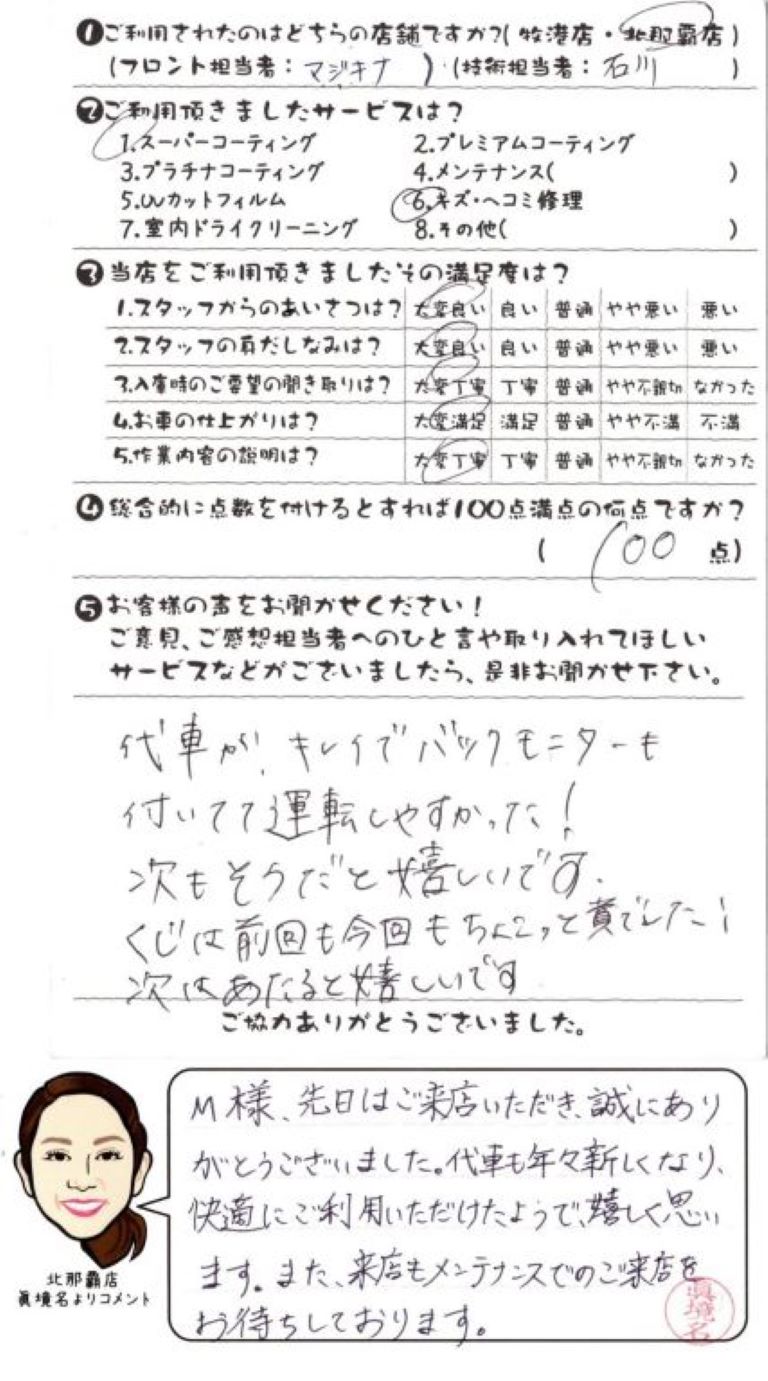 ❶ご利用されたのはどちらの店舗ですか?(牧港店・北那覇店)
(フロント担当者:マジキナ)(技術担当者:石川)
❷ご利用頂きましたサービスは?
1.スーパーコーティング 2.プレミアムコーティング
3.プラチナコーティング 4.メンテナンス( )
5.UVカットフィルム 6.キズ・ヘコミ修理
7.室内ドライクリーニング 8.その他( )
❸当店をご利用頂きましたその満足度は?
1.スタッフからのあいさつは? 大変良い 良い 普通 やや悪い 悪い
2.スタッフの身だしなみは? 大変良い 良い 普通 やや悪い 悪い
3.入庫時のご要望の聞き取りは? 大変丁寧 丁寧 普通 やや不親切 なかった
4.お車の仕上がりは? 大変満足 満足 普通 やや不満 不満
5.作業内容の説明は? 大変丁寧 丁寧 普通 やや不親切 なかった
❹総合的に点数を付けるとすれば100点満点の何点ですか?
(100点)
❺お客様の声をお聞かせください!
ご意見、ご感想担当者へのひと言や取り入れてほしい
サービスなどがございましたら、是非お聞かせ下さい。
代車が、キレイでバックモニターも
付いてて運転しやすかった!
次もそうだと嬉しいです.
くじは前回も今回もちんこっと賞でした!
次はあたると嬉しいです
ご協力ありがとうございました。
M様、先日はご来店いただき、誠にあり
がとうございました。代車も年々新しくなり、
快適にご利用いただけたようで、嬉しく思い
ます。また、来店もメンテナンスでのご来店を
お待ちしております。
眞境名
北那覇店
眞境名よりコメント